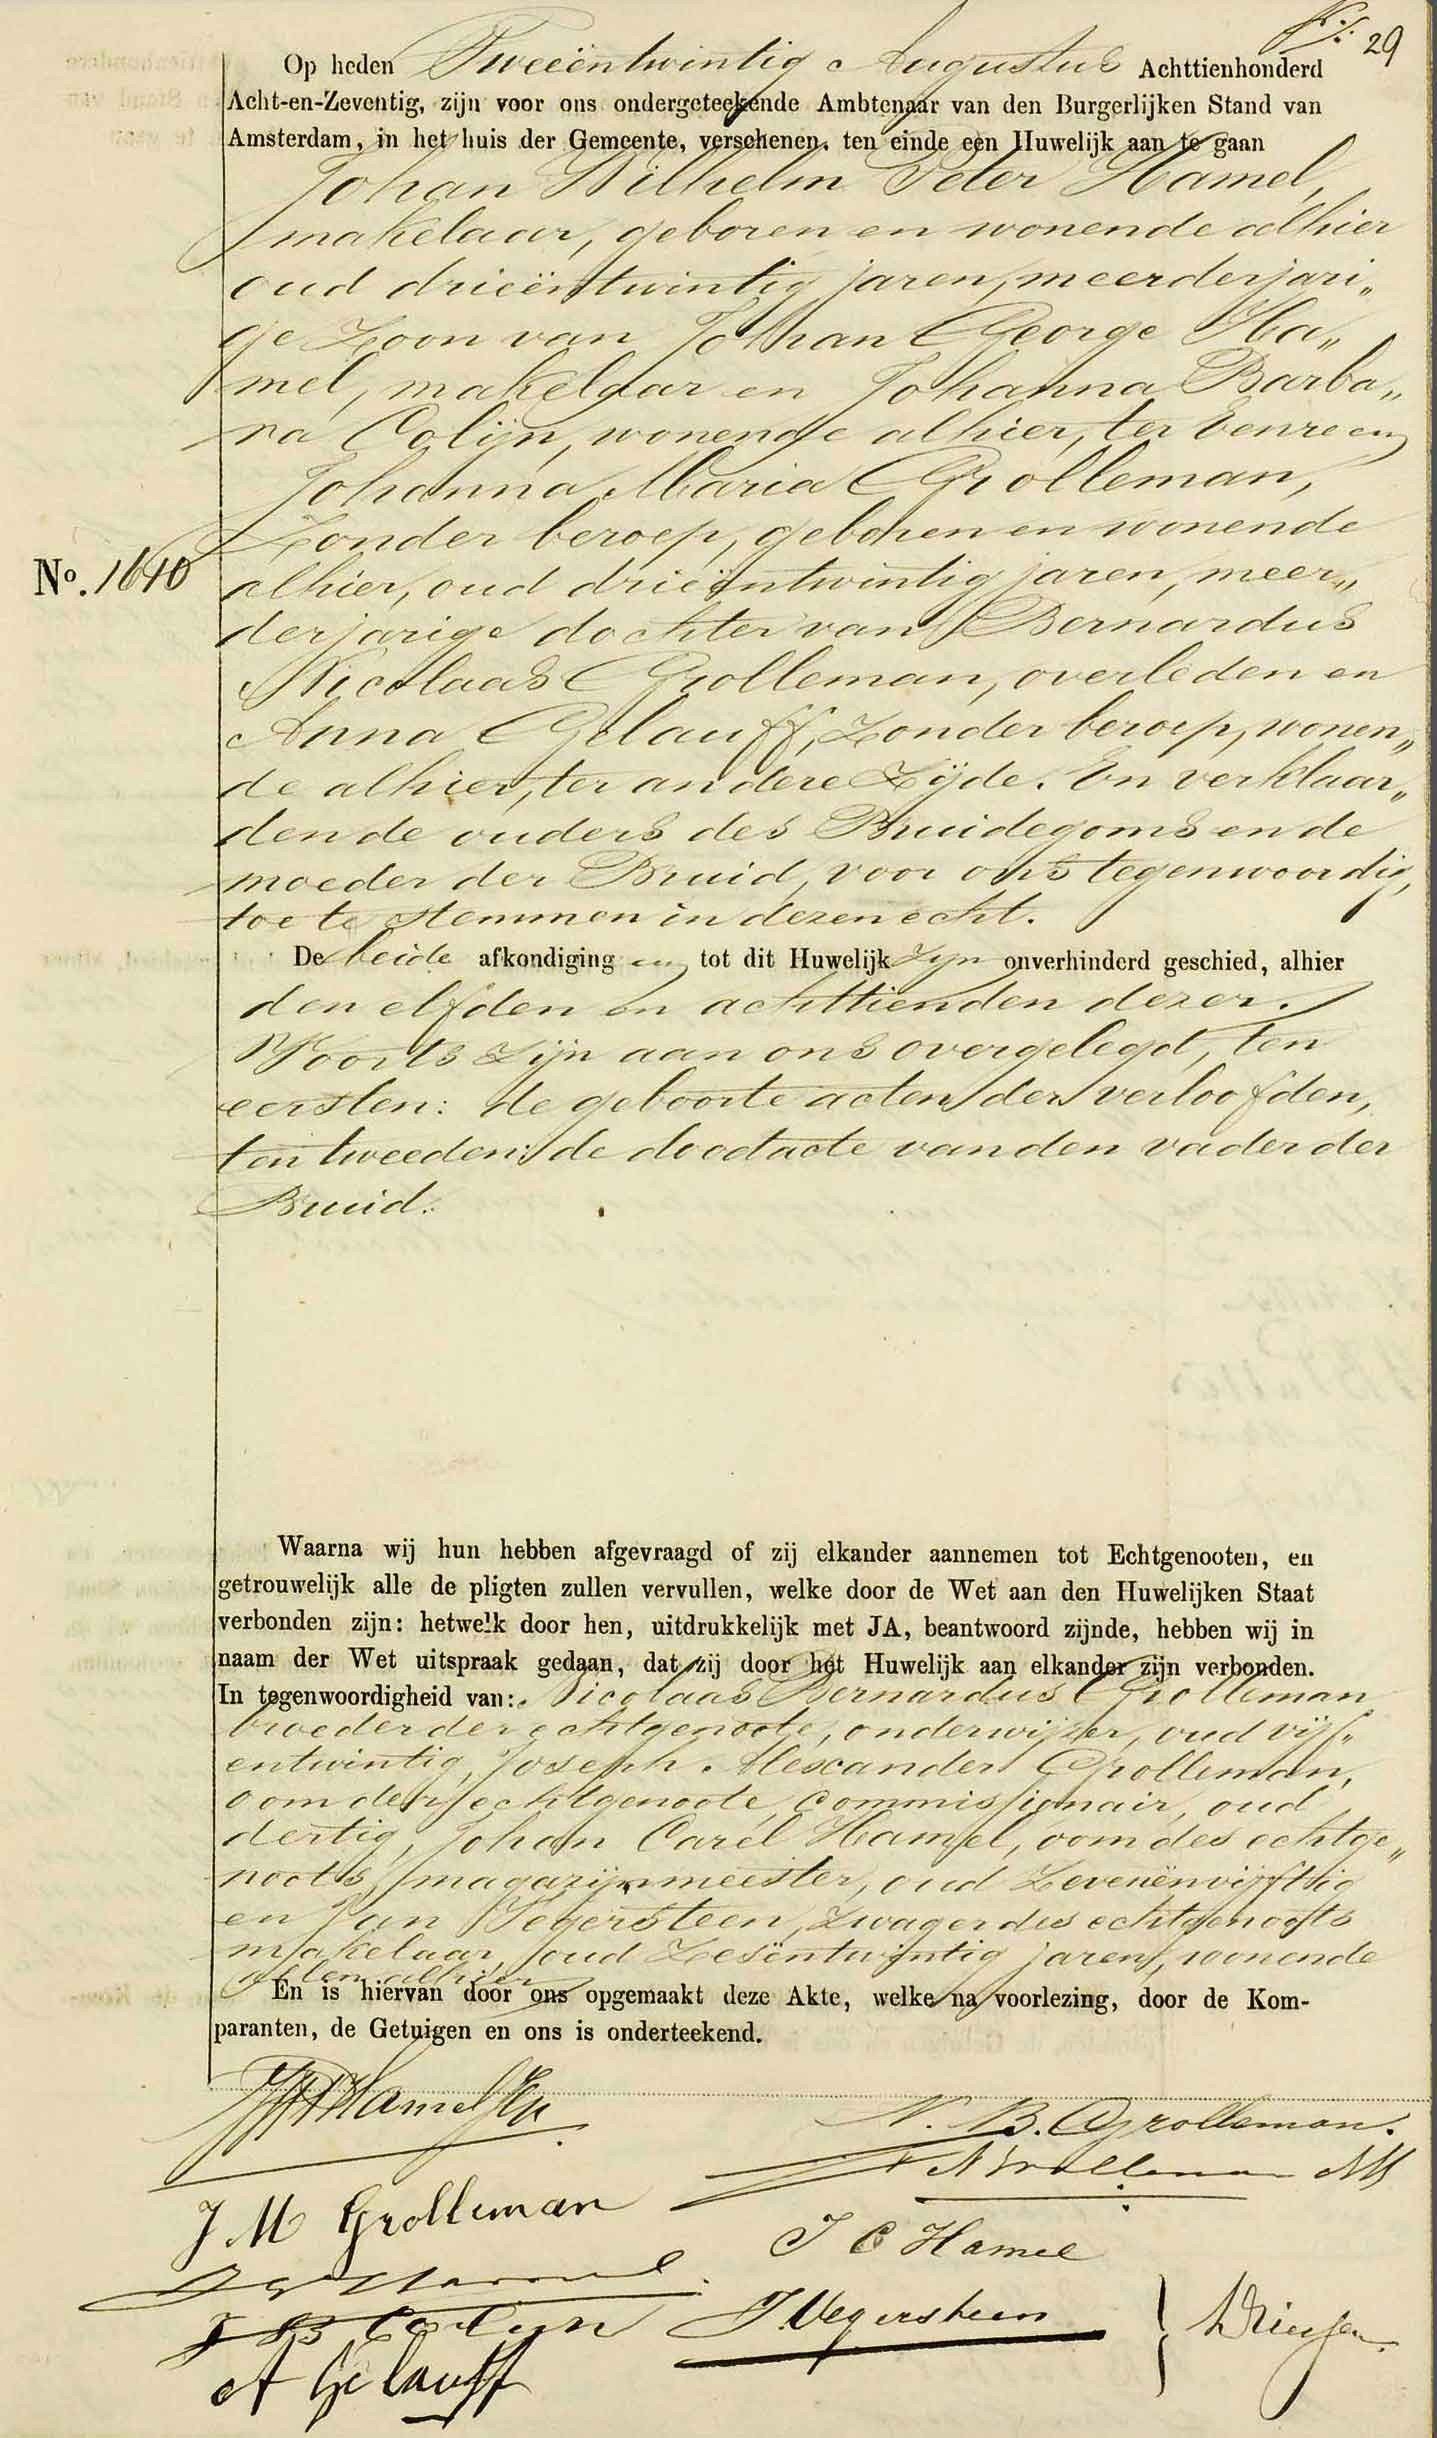 29
Op heden Tweeëntwintig Augustus Achttienhonderd
Acht-en-Zeventig, zijn voor ons ondergeteekende Ambtenaar van den Burgerlijken Stand van
Amsterdam, in het huis der Gemeente, verschenen, ten einde een Huwelijk aan te gaan
Johan Wilhelm Peter Hamel,
makelaar, geboren en wonende alhier
oud drieëntwintig jaren, meerderjari„
ge Zoon van Johan George Ha„
mel, makelaar en Johanna Barba„
ra Colijn, wonende alhier, ter eenre en
Johanna Maria Grolleman,
Zonder beroep, geboren en wonende
No. 1610 alhier, oud drieëntwintig jaren, meer„
derjarige dochter van Bernardus
Nicolaas Grolleman, overleden en
Anna Gelauff, Zonder beroep, wonen„
de alhier, ter andere Zijde. En verklaar„
den de ouders des Bruidegoms en de
moeder der Bruid, voor ons tegenwoordig,
toe te stemmen in dezen echt.
De beide afkondiging en tot dit Huwelijk Zijn onverhinderd geschied, alhier
den elfden en achttienden dezer.
Voorts Zijn aan ons overgelegd, ten
eersten: de geboorte acten der verloofden,
ten tweeden: de doodacte van den vader der
Bruid.
Waarna wij hun hebben afgevraagd of zij elkander aannemen tot Echtgenooten, en
getrouwelijk alle de pligten zullen vervullen, welke door de Wet aan den Huwelijken Staat
verbonden zijn: hetwelk door hen, uitdrukkelijk met JA, beantwoord zijnde, hebben wij in
naam der Wet uitspraak gedaan, dat zij door het Huwelijk aan elkander zijn verbonden.
In tegenwoordigheid van: Nicolaas Bernardus Grolleman
broeder der echtgenoote, onderwijzer, oud vijf„
entwintig, Joseph Alexander Grolleman,
oom der echtgenoote, commissionair, oud
dertig, Johan Carel Hamel, oom des echtge„
noots, magazijnmeester, oud Zevenënvijftig
en Jan Vegersteen, Zwager des echtgenoots
makelaar, oud Zesëntwintig jaren, wonende
allen alhier
En is hiervan door ons opgemaakt deze Akte, welke na voorlezing, door de Kom-
paranten, de Getuigen en ons is onderteekend.
JWPHamel
N. B. Grolleman.
J M Grolleman
J C Hamel
J G Hamel
J B Colijn
J. Vegersteen
A Gelauff